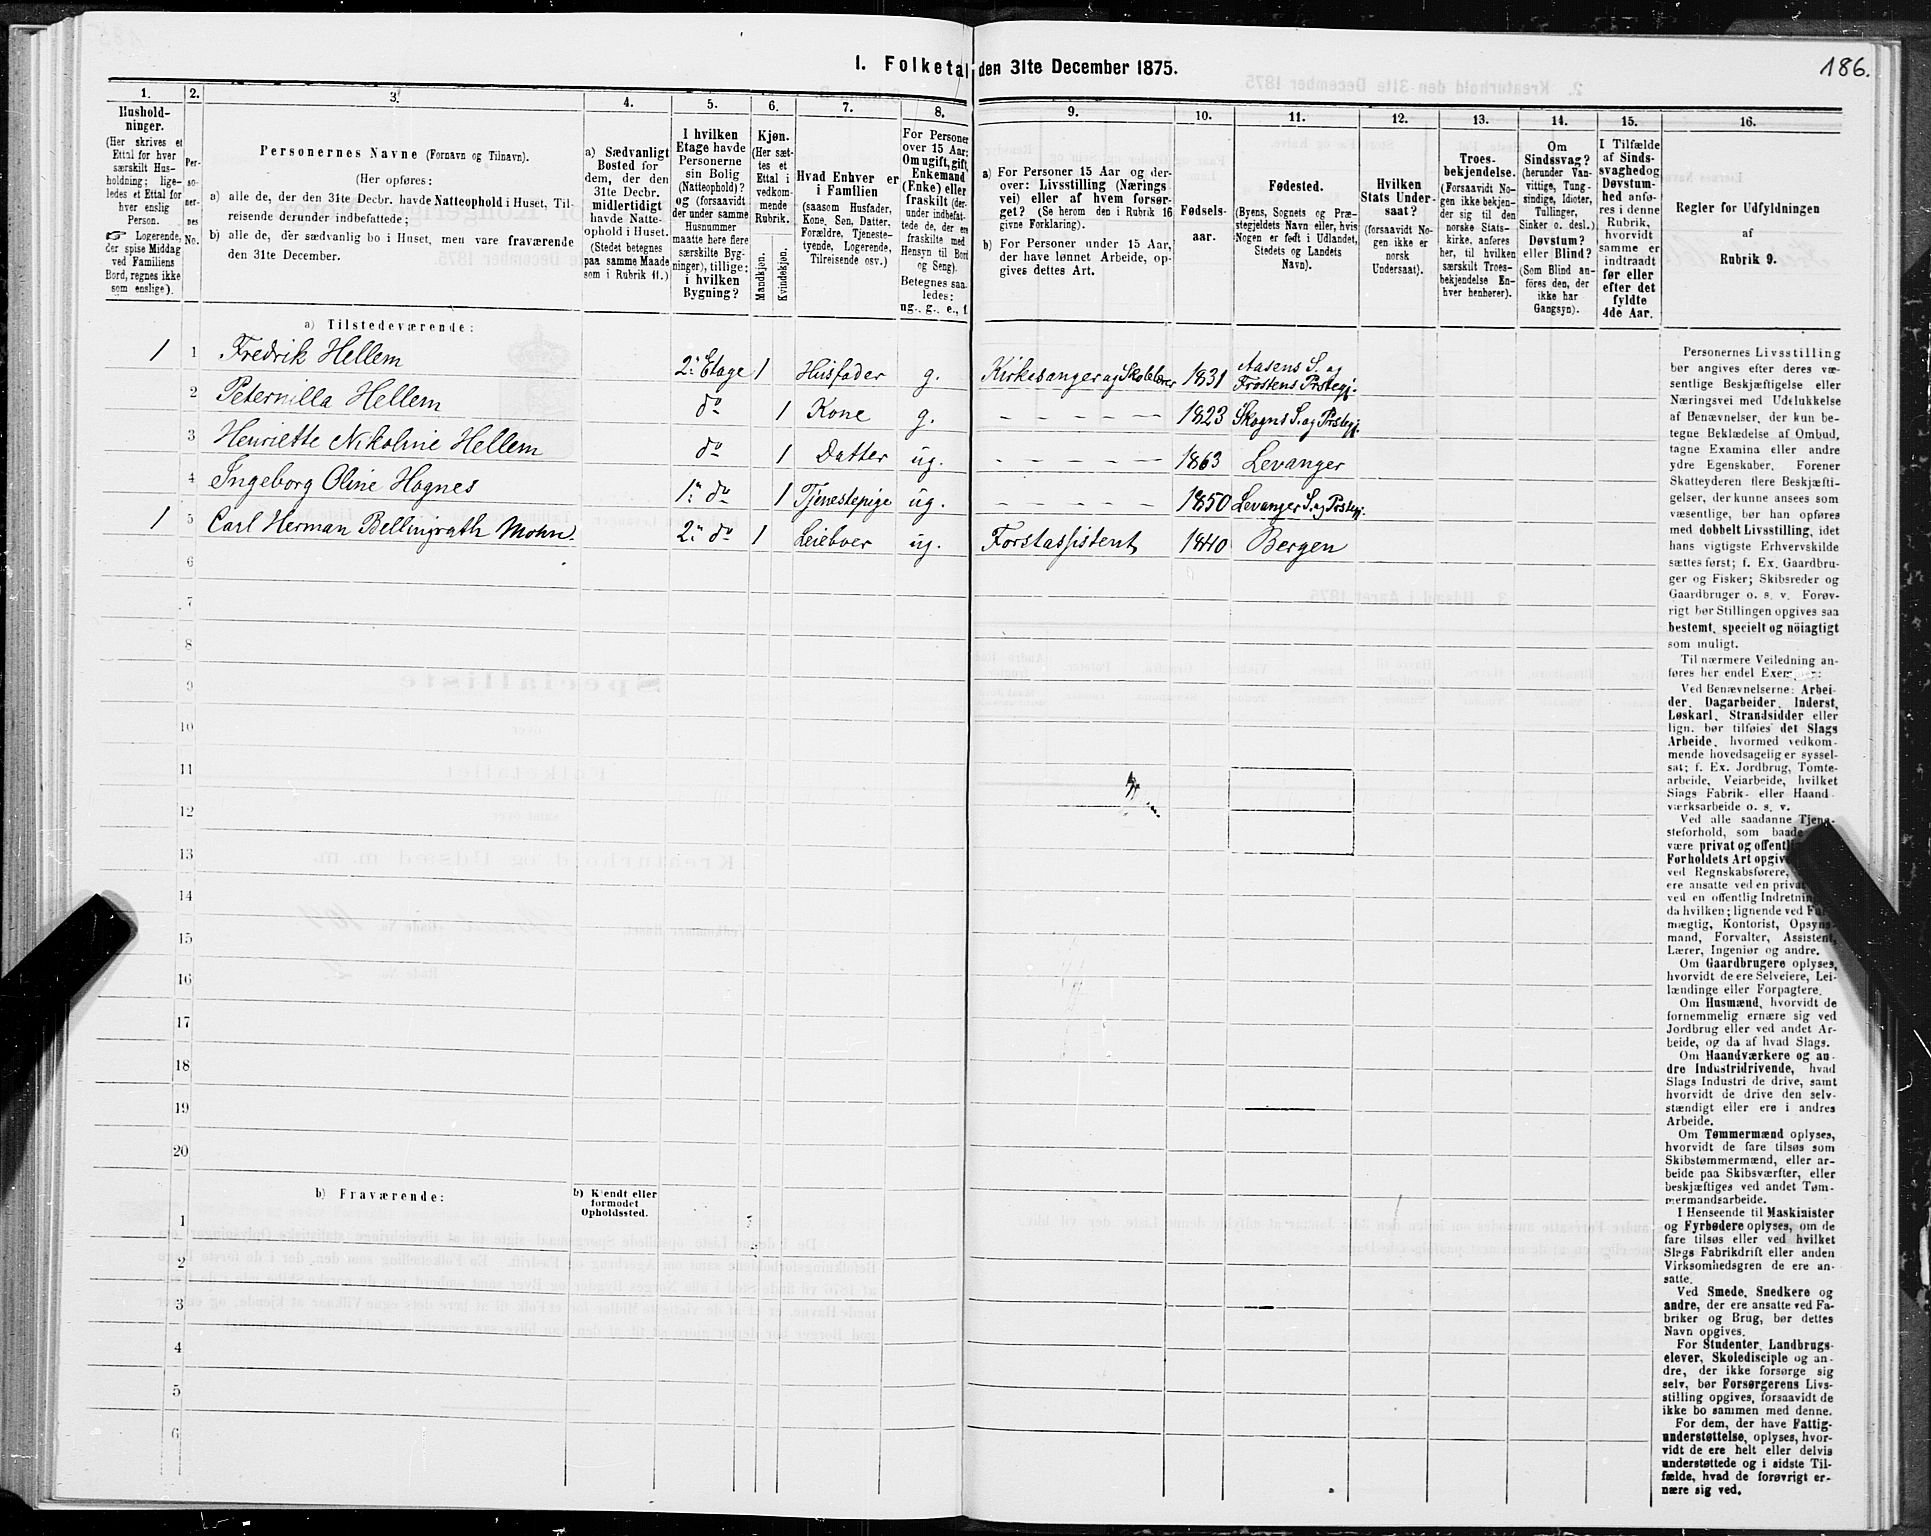 186.
1. Folketal den 31te December 1875.
1.
2.
3.
4.
5.
6.
7.
8.
9.
10.
11.
12.
13.
14.
15.
16.
Hushold-
ninger.
(Her skrives et
Ettal for hver
særskilt Hus-
holdning; lige-
ledes et Ettal for
hver enslig
Person.
☞ Logerende,
der spise Middag
ved Familiens
Bord, regnes ikke
som enslige).
Per-
so-
ner-
nes
No.
Personernes Navne (Fornavn og Tilnavn).
(Her opføres:
a) alle de, der den 31te Decbr. havde Natteophold i Huset, Til-
reisende derunder indbefattede;
b) alle de, der sædvanlig bo i Huset, men vare fraværende
den 31te December.
a) Sædvanligt
Bosted for
dem, der den
31te Decbr.
midlertidigt
havde Natte-
ophold i Huset.
(Stedet betegnes
paa samme Maade
som i Rubrik 11.)
I hvilken
Etage havde
Personerne
sin Bolig
(Natteophold)?
og (forsaavidt
der under samme
Husnummer
maatte høre flere
særskilte Byg-
ninger), tillige:
i hvilken
Bygning?
Kjøn.
(Her sæt-
tes et
Ettal i
vedkom-
mende
Rubrik.
Mandkjøn.
Kvindekjøn.
Hvad Enhver er
i Familien
(saasom Husfader,
Kone, Søn, Datter,
Forældre, Tjeneste-
tyende, Logerende,
Tilreisende osv.)
For Personer
over 15 Aar:
Om ugift, gift,
Enkemand
(Enke) eller
fraskilt (der-
under indbefat-
tede de, der ere
fraskilte med
Hensyn til Bord
og Seng).
Betegnes saa-
ledes:
ug., g., e., f.
a) For Personer 15 Aar og der-
over: Livsstilling (Nærings-
vei) eller af hvem forsør-
get? (Se herom den i Rubrik 16
givne Forklaring).
b) For Personer under 15 Aar,
der have lønnet Arbeide, op-
gives dettes Art.
Fødsels-
aar.
Fødested.
(Byens, Sognets og Præ-
stegjeldets Navn eller, hvis
Nogen er født i Udlandet,
Stedets og Landets
Navn).
Hvilken
Stats Under-
saat?
(forsaavidt No-
gen ikke er
norsk
Undersaat).
Troes-
bekjendelse.
(Forsaavidt No-
gen ikke bekjen-
der sig til den
norske Stats-
kirke, anføres
her, til hvilken
særskilt Troes-
bekjendelse En-
hver henhører).
Om
Sindssvag?
(herunder Van-
vittige, Tung-
sindige, Idioter,
Tullinger,
Sinker o. desl.)
Døvstum?
eller Blind?
(Som Blind an-
føres den, der
ikke har
Gangsyn).
I Tilfælde
af Sinds-
svaghed og
Døvstum-
hed anfø-
res i denne
Rubrik,
hvorvidt
samme er
indtraadt
før eller
efter det
fyldte
4de Aar.
Regler for Udfyldningen
af
Rubrik 9.
a) Tilstedeværende:
1 1 Fredrik Hellem 2. Etage 1 Husfader g. Kirkesanger og Skolelærer 1831 Aasens S. og Frostens Prstegj.
2 Peternilla Hellem do 1 Kone g. – – – – – 1823 Skogns S. og Prstegj.
3 Henriette Nikoline Hellem do 1 Datter ug. – – – – – 1863 Levanger
4 Ingeborg Oline Hognes 1. do 1 Tjenestepige ug. – – – – 1850 Levanger S. og Prstegj.
1 5 Carl Herman Bellingrath Mohn. 2. do 1 Leieboer ug. Forstassistent 1840 Bergen
6
7
8
9
10
11
12
13
14
15
16
17
18
19
20
b) Fraværende:
b) Kjendt eller
formodet
Opholdssted.
1
2
3
4
5
6
Personernes Livsstilling
bør angives efter deres væ-
sentlige Beskjæftigelse eller
Næringsvei med Udelukkelse
af Benævnelser, der kun be-
tegne Beklædelse af Ombud,
tagne Examina eller andre
ydre Egenskaber. Forener
Skatteyderen flere Beskjæfti-
gelser, der kunne ansees som
væsentlige, bør han opføres
med dobbelt Livsstilling, idet
hans vigtigste Erhvervskilde
sættes først; f. Ex. Gaardbru-
ger og Fisker; Skibsreder og
Gaardbruger o. s. v. Forøv-
rigt bør Stillingen opgives saa
bestemt, specielt og nöiagtigt
som muligt.
Til nærmere Veiledning an-
føres her endel Exempler:
Ved Benævnelserne: Arbei-
der, Dagarbeider, Inderst,
Løskarl, Strandsidder eller
lign. bør tilføies det Slags
Arbeide, hvormed vedkom-
mende hovedsagelig er syssel-
sat; f. Ex. Jordbrug, Tomte-
arbeide, Veiarbeide, hvilket
Slags Fabrik- eller Haand-
værksarbeide o. s. v.
Ved alle saadanne Tjene-
steforhold, som baade
være privat og offentlig
Forholdets Art opgives
ved Regnskabsførere,
ere ansatte ved en privat
ved en offentlig Indretning
da hvilken; lignende ved Fuld-
mægtig, Kontorist, Opsyns-
mand, Forvalter, Assistent,
Lærer, Ingeniør og andre.
Om Gaardbrugere oplyses,
hvorvidt de ere Selveiere, Lei-
lændinge eller Forpagtere.
Om Husmænd, hvorvidt de
fornemmelig ernære sig ved
Jordbrug eller ved andet Ar-
beide, og da af hvad Slags.
Om Haandværkere og an-
dre Industridrivende, hvad
Slags Industri de drive, samt
hvorvidt de drive den selv-
stændigt eller ere i andres
Arbeide.
Om Tømmermænd oplyses,
hvorvidt de fare tilsøs som
Skibstømmermænd, eller ar-
beide paa Skibsværfter, eller
beskjæftiges ved andet Tøm-
mermandsarbeide.
I Henseende til Maskinister
og Fyrbødere oplyses, om de
fare tilsøs eller ved hvilket
Slags Fabrikdrift eller anden
Virksomhedsgren de ere an-
satte.
Ved Smede, Snedkere og
andre, der ere ansatte ved Fa-
briker og Brug, bør dettes
Navn opgives.
For Studenter, Landbrugs-
elever, Skoledisciple og an-
dre, der ikke forsørge sig
selv, bør Forsørgerens Livs-
stilling opgives, forsaavidt de
ikke bo sammen med denne.
For dem, der have Fattig-
understøttelse, oplyses, hvor-
vidt de ere helt eller delvis
understøttede og i sidste Til-
fælde, hvad de forøvrigt er-
nære sig ved.